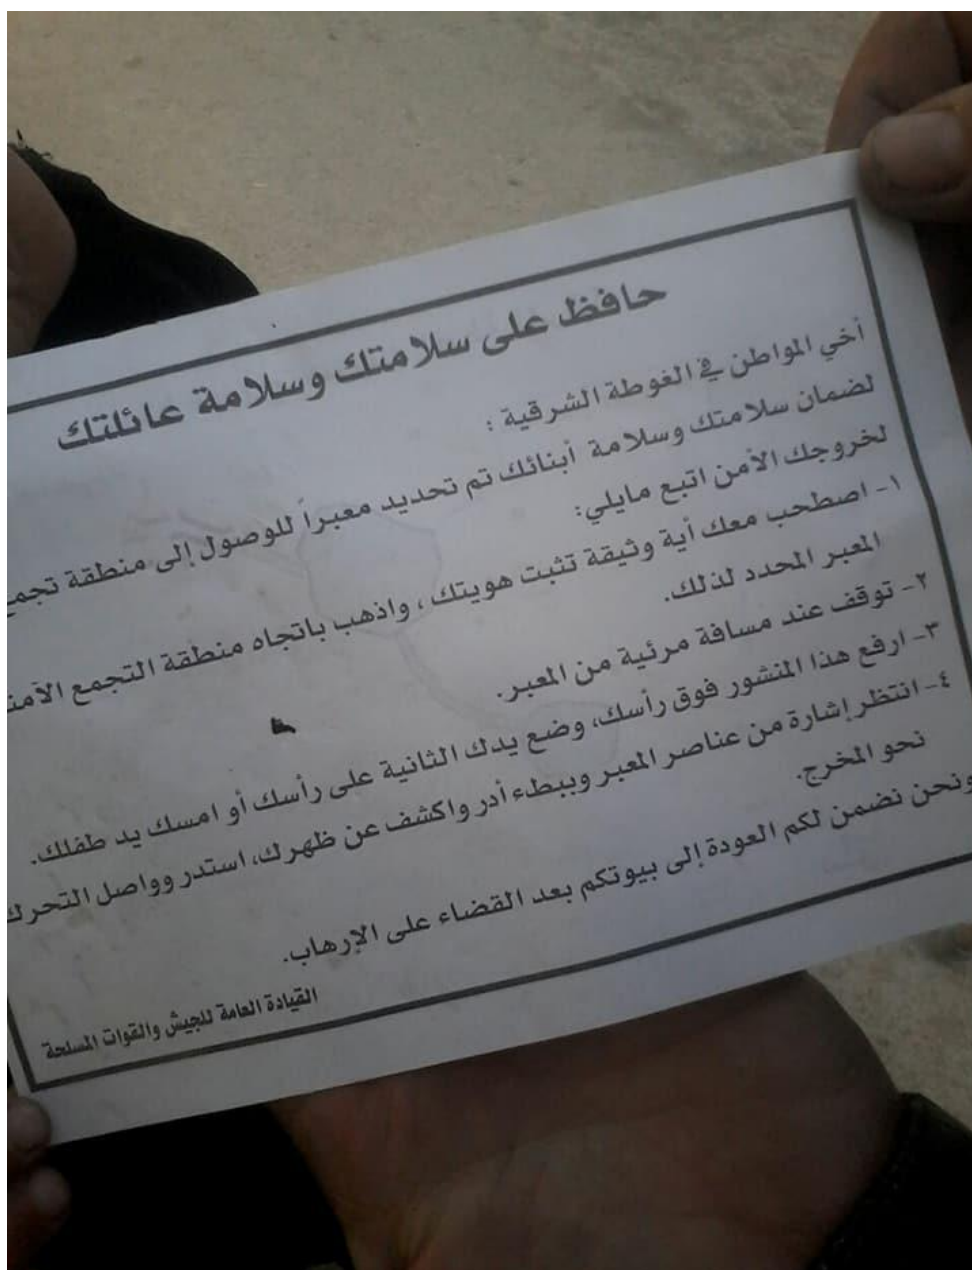 حافظ على سلامتك وسلامة عائلتك
أخي المواطن في الغوطة الشرقية :
لضمان سلامتك وسلامة أبنائك تم تحديد معبراً للوصول إلى منطقة
لخروجك الآمن اتبع مايلي:
١- اصطحب معك أية وثيقة تثبت هويتك ، واذهب باتجاه منطقة التجمع
المعبر المحدد لذلك.
٢- توقف عند مسافة مرئية من المعبر.
٣- ارفع هذا المنشور فوق رأسك، وضع يدك الثانية على رأسك أو امسك يد طفلك.
٤- انتظر إشارة من عناصر المعبر وببطء أدر واكشف عن ظهرك، استدر وواصل التحرك
نحو المخرج.
ونحن نضمن لكم العودة إلى بيوتكم بعد القضاء على الإرهاب.
القيادة العامة للجيش والقوات المسلحة